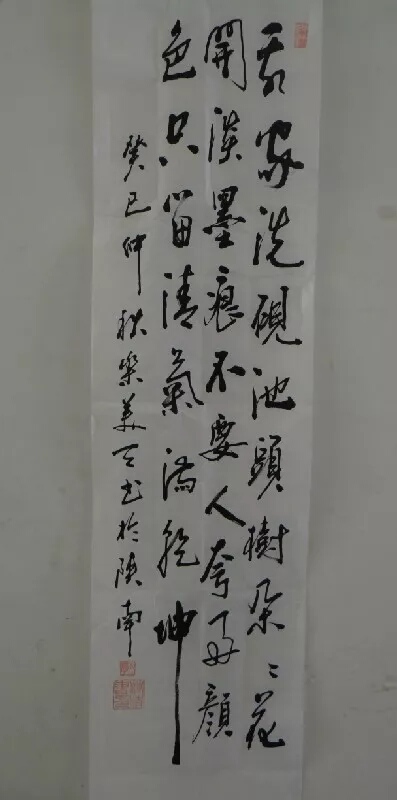 我家洗硯池頭樹朵〻花
開淡墨痕不要人夸好顔
色只留清氣滿乾坤
癸巳仲秋樂美书於陕南